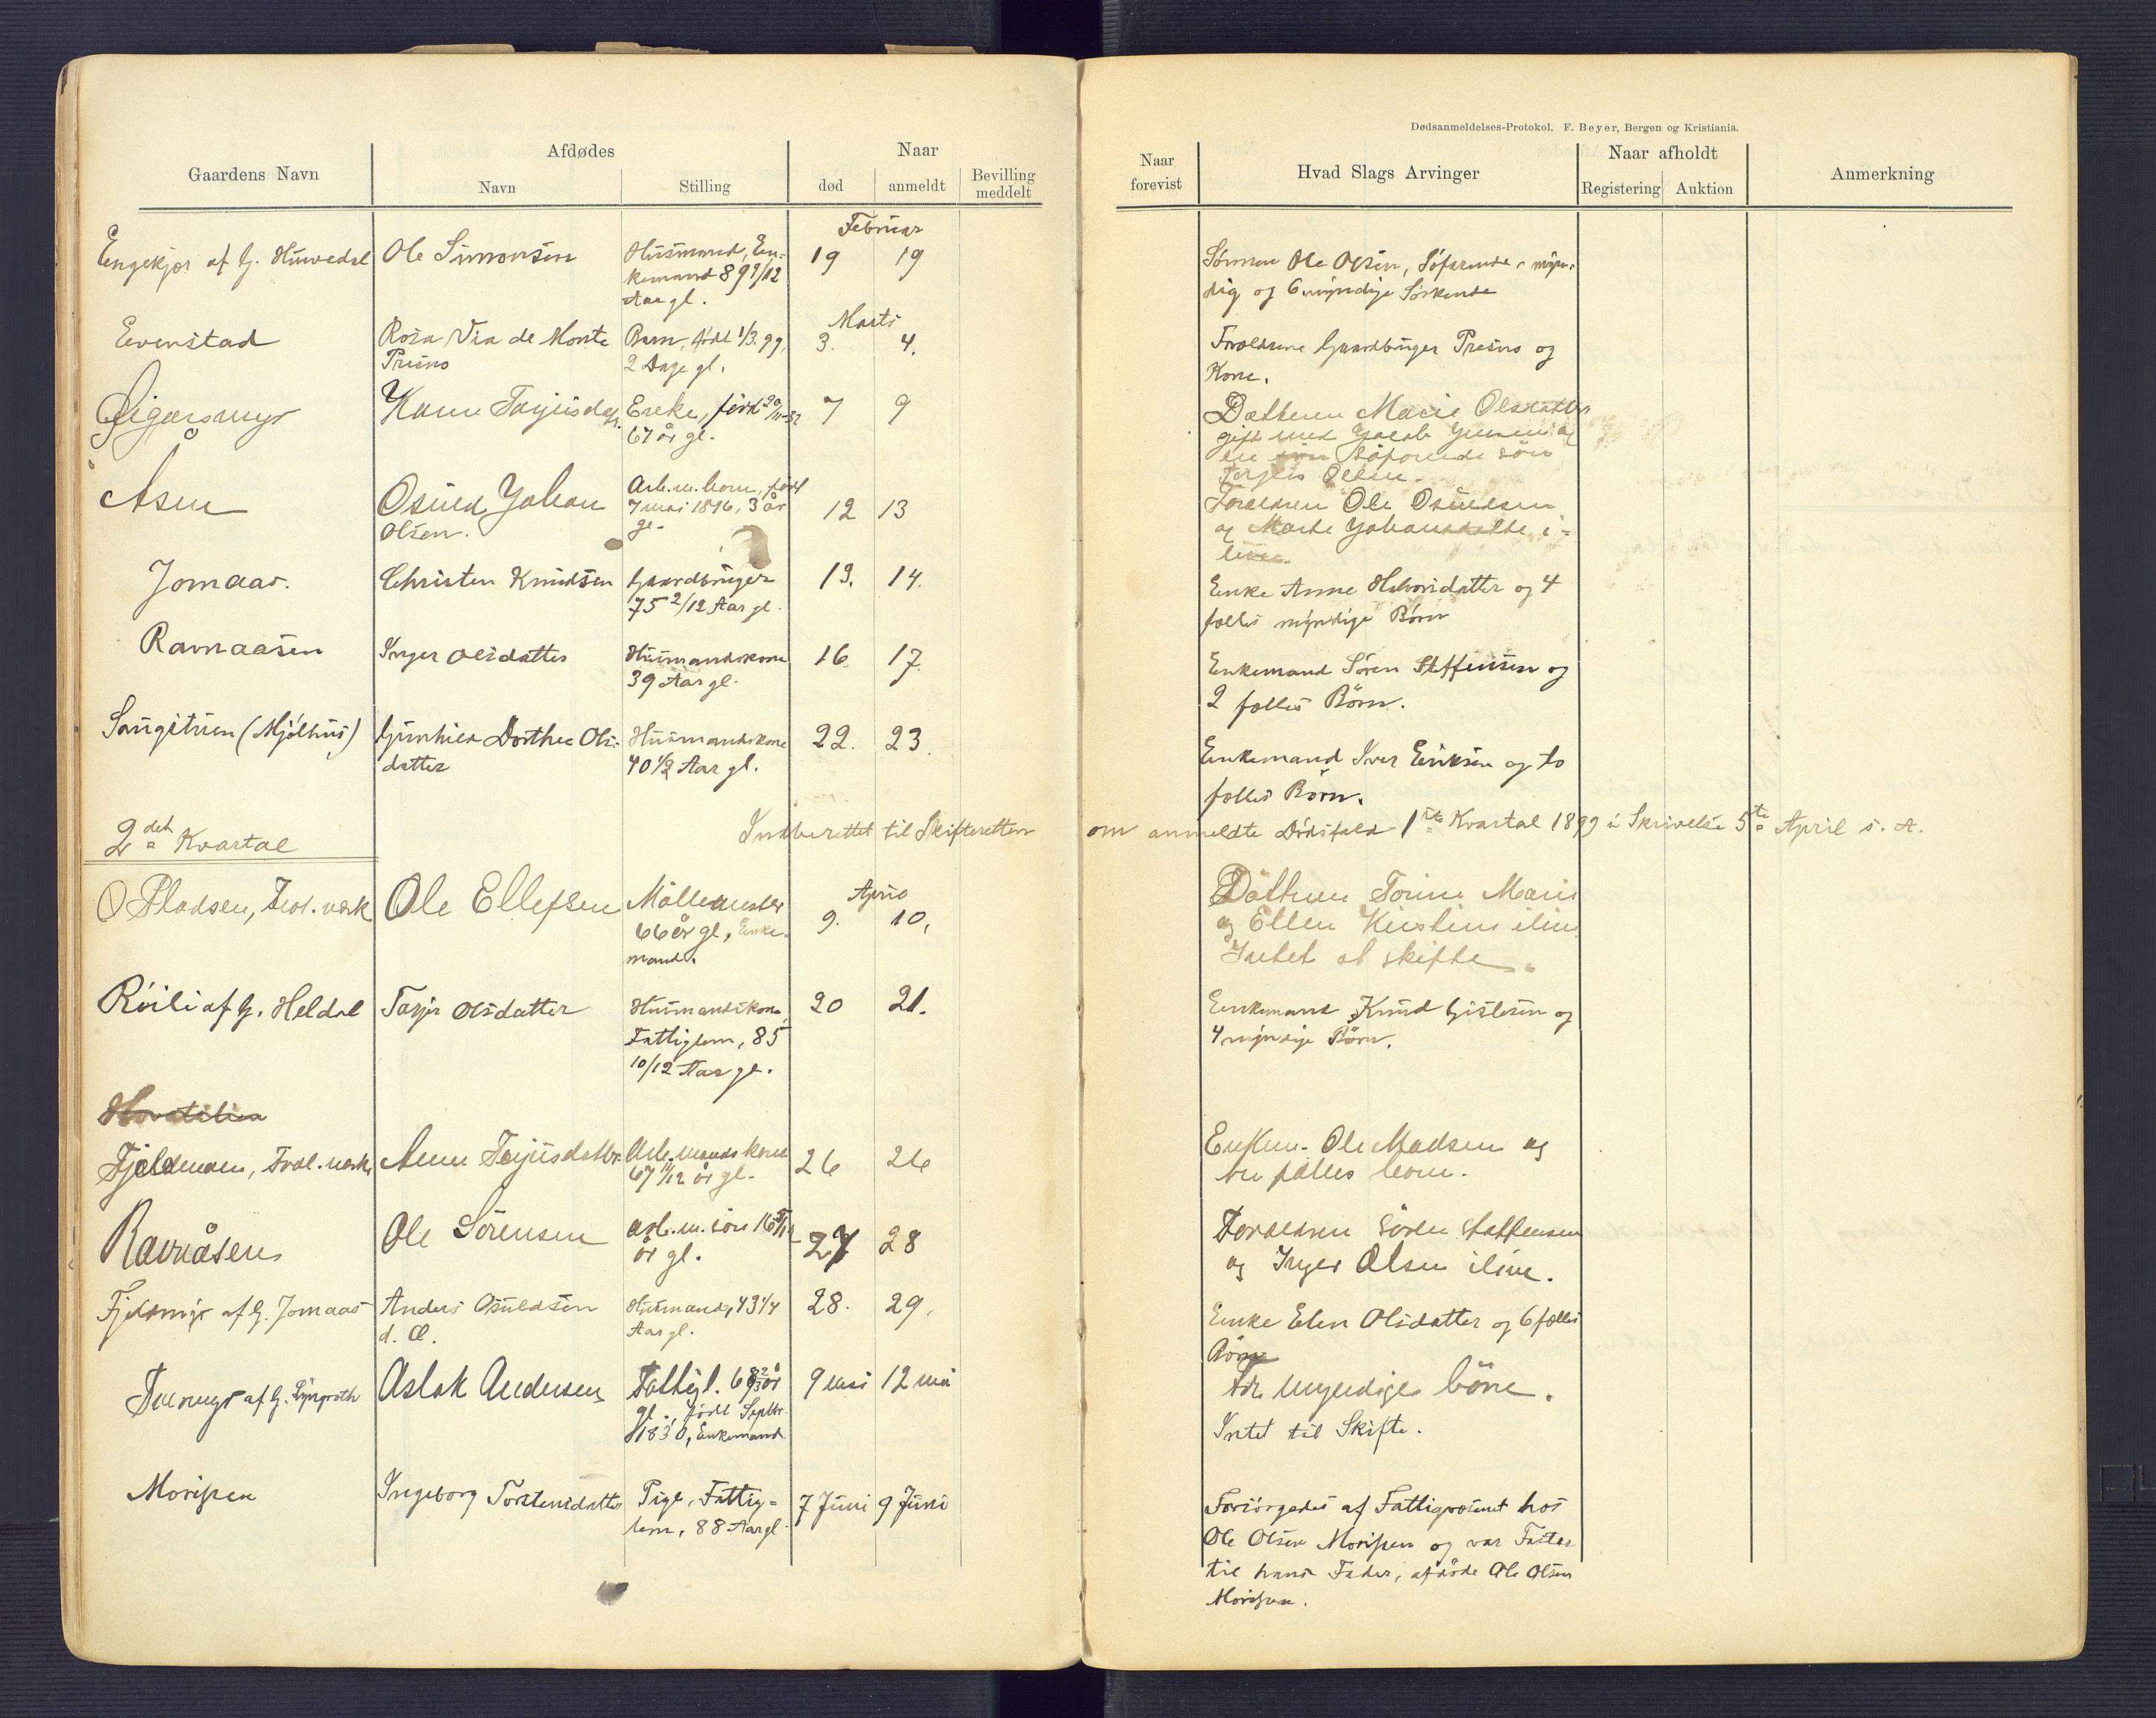 Dødsanmeldelses-Protokol. F. Beyer, Bergen og Kristiania.
Gaardens Navn
Afdødes
Navn
Stilling
Naar
død
anmeldt
Bevilling
meddelt
Naar
forevist
Hvad Slags Arvinger
Naar afholdt
Registering
Auktion
Anmerkning
Februar
Engekjær af G. Huvedal
Ole Simonsen
Husmand, En-
kemand 89 9/12
Aar gl.
19
19
Sønnen Ole Olsen, Søfarende, myn-
dig og 6 myndige Søskende
Marts
Evenstad
Rosa Via de Monte
Presno
Barn, født 1/3 99,
2 Dage gl.
3.
4.
Forældrene Gaardbruger Presno og
Kone.
Sigersmyr
Karen Terjesdatr.
Enke, född
67 år gl.
7
9
Datteren Marie Olsdatter
gift med Jacob Jensen og
en söfarende sön
Terjes Olsen.
Åsen
Osuld Johan
Olsen.
Arb.m. barn, född
7 mai 1896, 3 år
gl.
12
13
Forældren Ole Osuldsen
og Marte Johansdatte i-
live.
Jomaas.
Christen Knudsen
Gaardbruger
75 2/12 Aar gl.
13.
14.
Enke Anne Halvorsdatter og 4
fælles myndige Børn
Ravnaasen
Inger Olsdatter
Husmandskone
39 Aar gl.
16.
17.
Enkemand Søren Steffensen og
2 fælles Børn.
Saugstuen (Mjølhus)
Gunhild Dorthea Ols-
datter
Husmandskone
40 1/2 Aar gl.
22.
23.
Enkemand Iver Eriksen og to
fælles Børn.
Indberettet til Skifteretten om anmeldte Dødsfald 1ste Kvartal 1899 i Skrivelse 5te April s. A.
2det Kvartal
April
Pladsen, Frol. værk
Ole Ellefsen
Möllemester
66 år gl, Enke-
mand.
9.
10.
Döttrene Torine Marie
og Ellen Kirstine ilive
Intet at skifte.
Röili af G. Heldal
Tarjer Olsdatter
Husmandskone,
Fattiglem, 85
10/12 Aar gl.
20
21.
Enkemand Knud Gislesen og
4 myndige Børn.
Fjeldmoen, Frol. værk
Anne Terjesdatter
Arb.mands kone
67 11/12 år gl.
26
26
Enkem. Ole Madsen og
tre fælles barn.
Ravnåsen
Ole Sörensen
arb. m. sön
år gl.
27
28
Forældren Sören Staffensen
og Inger Olsen ilive.
Fjeldmyr af G. Jomaas
Anders Osuldsen
d. Æ.
Husmand, 43 1/4
Aar gl.
28.
29.
Enke Elen Olsdatter og 6 fælles
Børn
af G. Lyngroth
Aslak Andersen
Fattigl.
gl., född Septbr.
1830, Enkemand
9 mai
12 mai
myndige börn.
Intet til Skifte.
Morifsen
Ingeborg Torstensdatter
Pige, Fattig-
lem, 88 Aar gl.
7 Juni
9 Juni
Forsørgedes af Fattigvæsenet hos
Ole Olsen Morifsen og var Faster
til hans Fader, afdøde Ole Olsen
Morifsen.